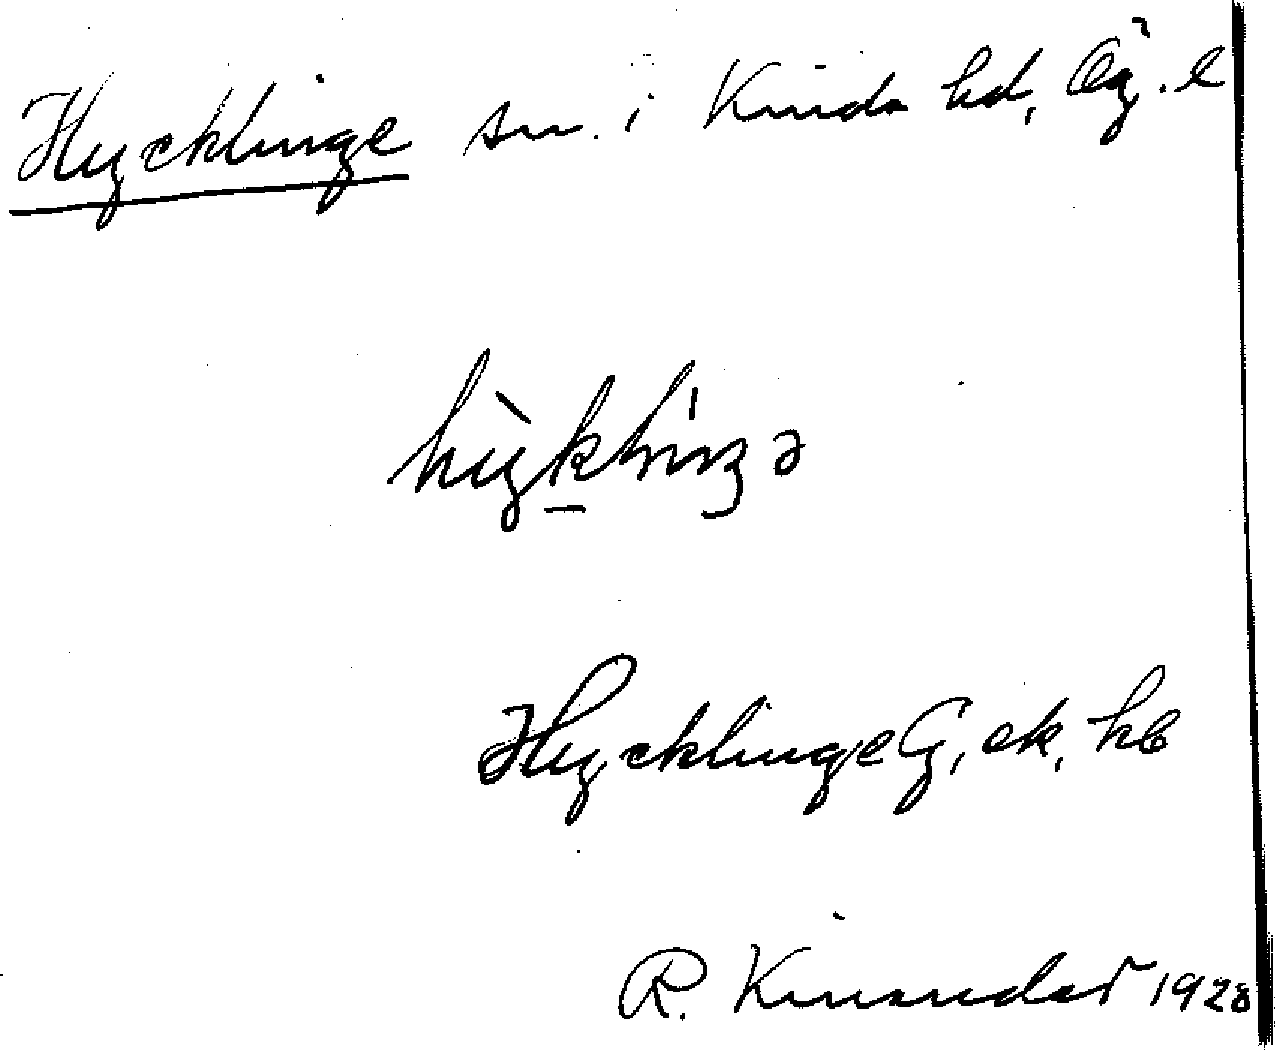 Hycklinge sn. i Kinda hd, Ög. l
hỳkliŋə
Hycklinge G, ek, kb
R. Kinander 1928